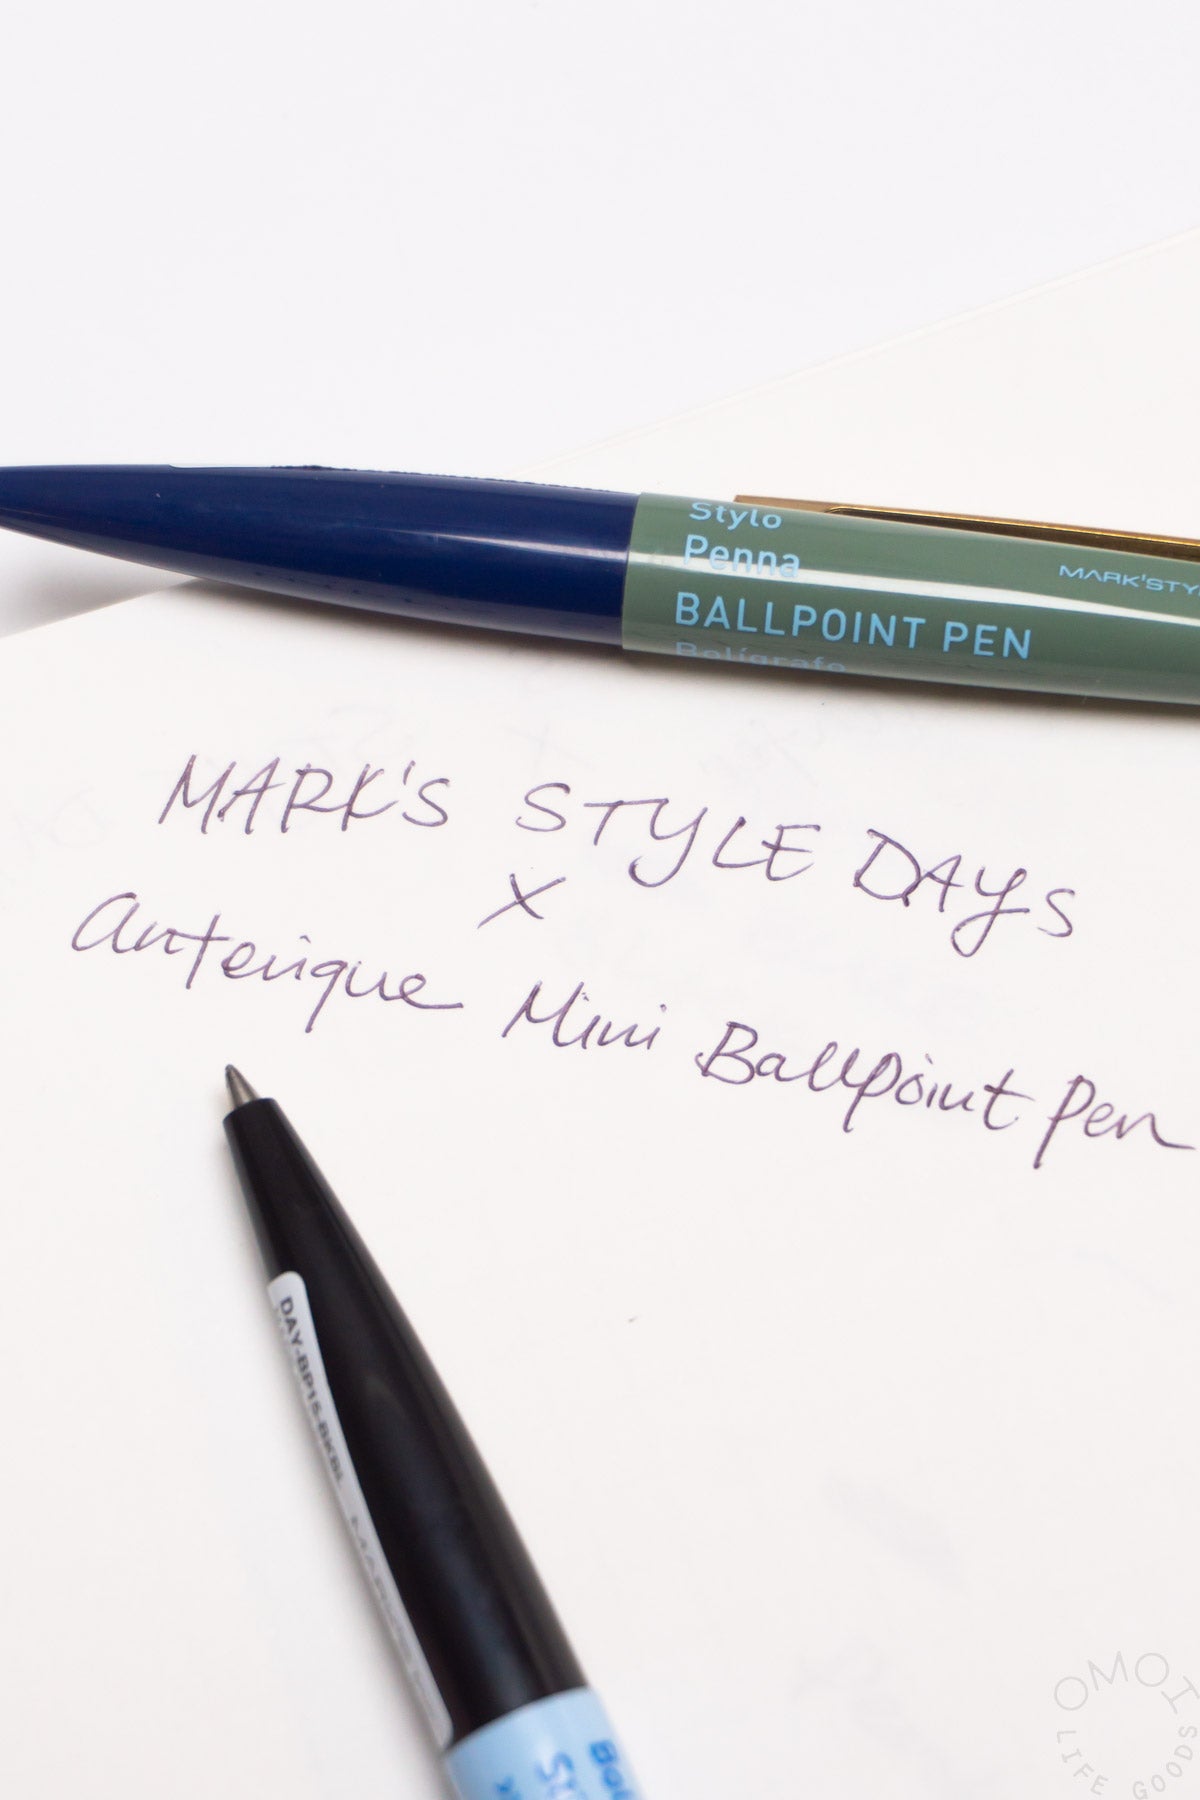 Stylo
Penna
BALLPOINT PEN
Bolígrafo
MARK'STY
MARK'S STYLE DAYS
X
Anterique Mini Ballpoint Pen
DAY-BP15-BKBL
OMOI
LIFE GOODS